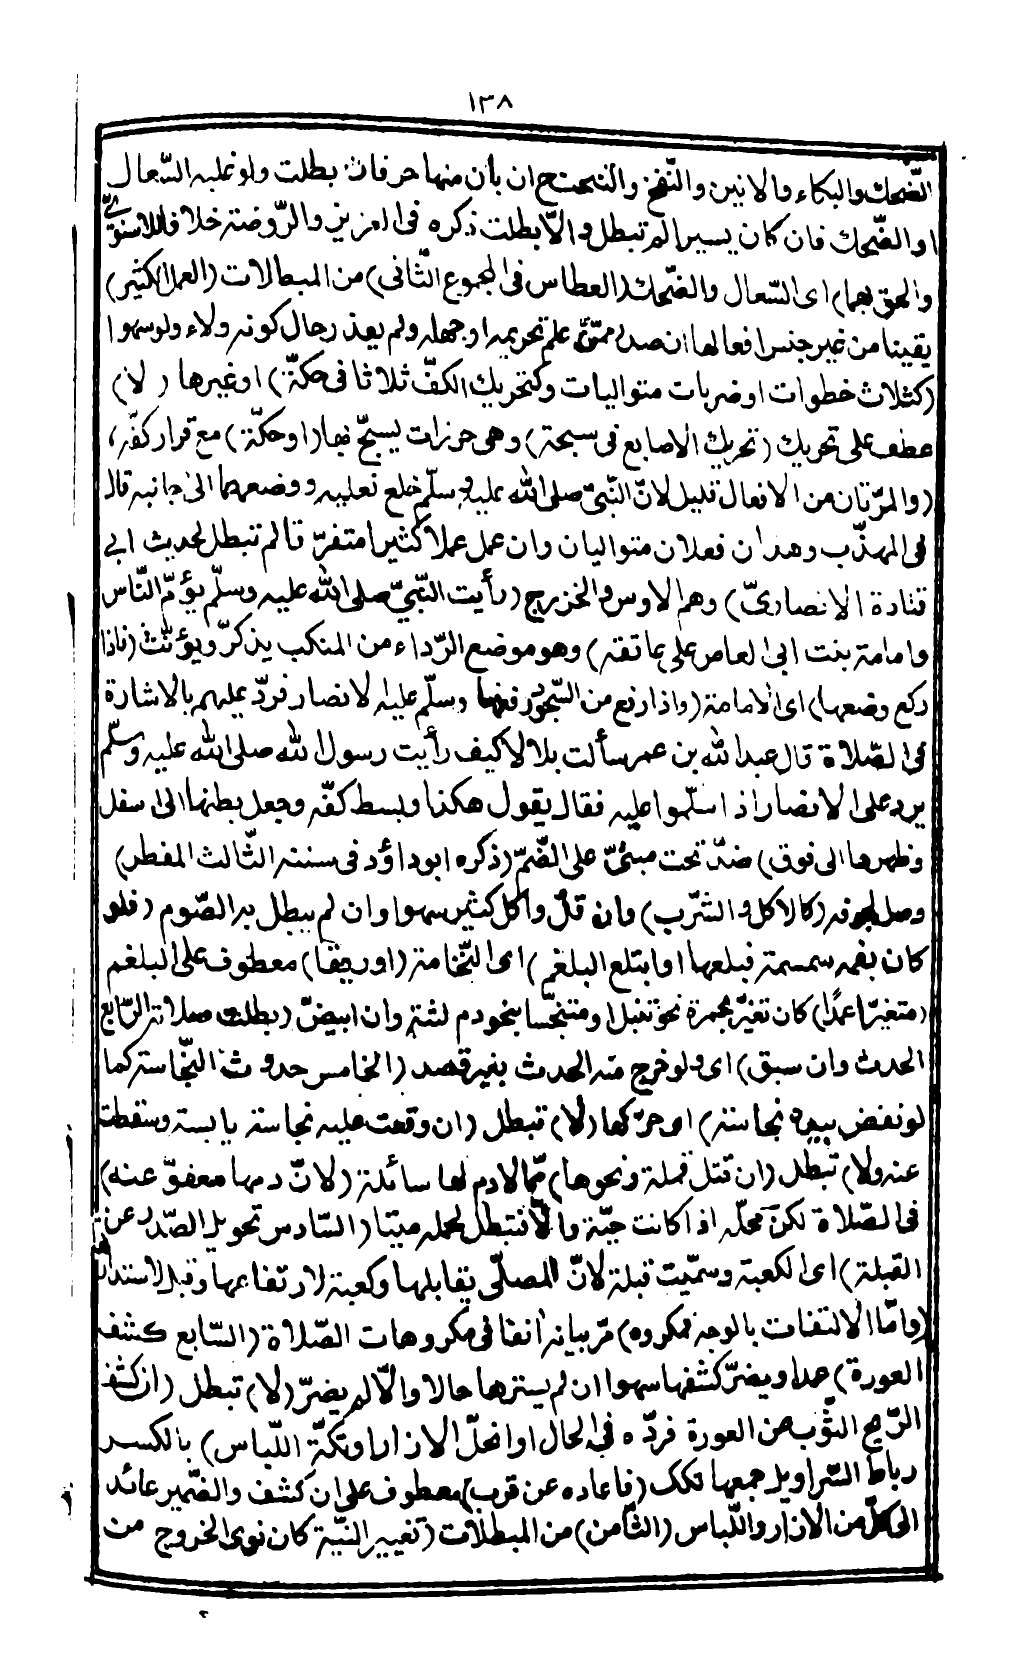 ١٣٨
الضّحك والبكاء والانين والنّفخ والتنحنح ان بان منها حرفان بطلت ولو غلبه السّعال
او الضّحك فان كان يسيرا لم تبطل والّا بطلت ذكره فى العزيز والرّوضة خلافا للاسنويّ
والحق بهما) اى السّعال والضّحك (العطاس فى المجموع الثّانى) من المبطلات (العمل الكثير)
يقينا من غير جنس افعالها ان صدر ممّن علم تحريمه او جهله ولم يعذر حال كونه ولاء ولو سهوا
(كثلاث خطوات او ضربات متواليات وكتحريك الكفّ ثلاثا فى حكّة) او غيرها (لا)
عطف على تحريك (تحريك الاصابع فى سبحة) وهى خرزات يسبّح بها (او حكّة) مع قرار كفّه
(والمرّتان من الافعال قليل لانّ النّبيّ صلى الله عليه وسلّم خلع نعليه ووضعهما الى جانبه قال
فى المهذّب وهذان فعلان متواليان وان عمل عملا كثيرا متفرّقا لم تبطل لحديث ابي
قتادة الانصاريّ) وهم الاوس والخزرج (رأيت النّبيّ صلى الله عليه وسلّم يؤمّ النّاس
وامامة بنت ابى العاص على عاتقه) وهو موضع الرّداء من المنكب يذكّر ويؤنّث (فاذا
ركع وضعها) اى الامامة (واذا رفع من السّجود رفعها وسلّم عليه الانصار فردّ عليهم بالاشارة
فى الصّلاة قال عبد الله بن عمر سألت بلالا كيف رأيت رسول الله صلى الله عليه وسلّم
يرد على الانصار اذا سلّموا عليه فقال يقول هكذا وبسط كفّه وجعل بطنها الى اسفل
وظهرها الى فوق) ضدّ تحت مبنيّ على الضّمّ (ذكره ابو داؤد فى سننه الثّالث المفطر)
وصل لجوفه (كالاكل والشّرب) وان قلّ واكل كثير سهوا وان لم يبطل به الصّوم (فلو
كان بفمه سمسمة فبلعها او ابتلع البلغم) اى النّخامة (او ريقا) معطوف على البلغم
(متغيّرا عمدًا) كان تغيّر بحمرة نحو تنبل او متنجّسا بنحو دم لثته وان ابيضّ (بطلت صلاته الرّابع
الحدث وان سبق) اى ولو خرج منه الحدث بغير قصد (الخامس حدوث النّجاسة كما
لو نفض بيده نجاسة) او حرّكها (لا) تبطل (ان وقعت عليه نجاسة يابسة وسقطت
عنه ولا) تبطل (ان قتل قملة ونحوها) ممّا لا دم لها سائلة (لانّ دمها معفوّ عنه)
فى الصّلاة لكن محلّه اذا كانت حيّة والّا فتبطل لحمله ميتا (السّادس تحويل الصّدر عن
القبلة) اى الكعبة وسمّيت قبلة لانّ المصلّى يقابلها وكعبة لارتفاعها وقيل لاستدارتها
(وامّا الالتفات بالوجه فمكروه) مرّ بيانه أنفا فى مكروهات الصّلاة (السّابع كشف
العورة) عمدا ويضرّ كشفها سهوا ان لم يسترها حالا والّا لم يضرّ (لا) تبطل (ان كشف
الرّيح الثّوب عن العورة فردّه فى الحال او انحلّ الازار او تكّة اللّباس) بالكسر
رباط السّراويل جمعها تكك (فاعاده عن قرب) معطوف على ان كشف والضّمير عائد
الى كلّ من الازار واللّباس (الثّامن) من المبطلات (تغيير النيّة كان نوى الخروج من